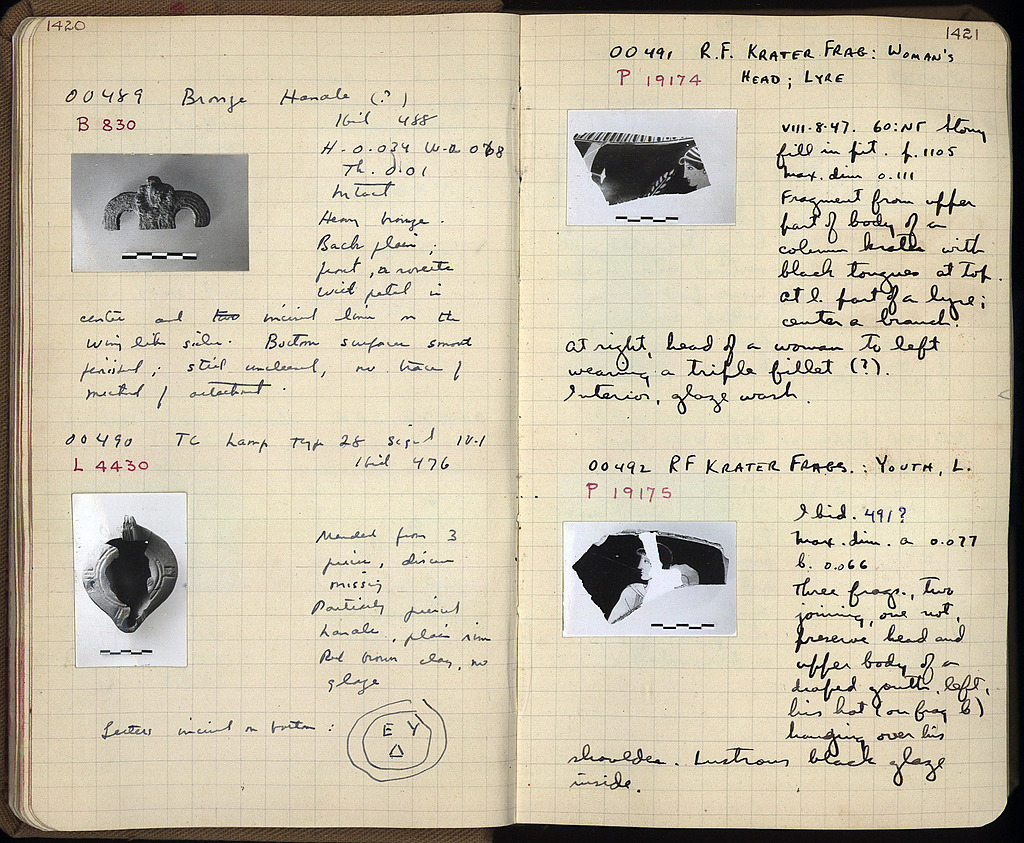 1420
OO 489 Bronze Handle (?)
B 830
Ibid 488
H. 0.034 W. 0.068
Th. 0.01
Intact
Heavy bronze.
Back plain;
front, a rosette
with petal in
center and two incised lines on the
wing like sides. Bottom surface smooth
finished; still uncleaned, no trace of
method of attachment.
OO 490 TC Lamp Type 28 Signed IV-1
L 4430
Ibid 476
Mended from 3
pieces, discus
missing
Partially pierced
handle, plain rim
Red brown clay, no
glaze
Letters incised on bottom:
E Y
Δ
1421
OO 491 R.F. KRATER FRAG: WOMAN'S
P 19174 HEAD; LYRE
VIII-8-47. 60:ΝΓ Stony
fill in pit. p. 1105
Max. dim 0.111
Fragment from upper
part of body of a
column krater with
black tongues at top.
At l. part of a lyre;
center a branch.
At right, head of a woman to left
wearing a triple fillet (?).
Interior, glaze wash.
OO 492 RF KRATER FRAGS.: YOUTH, L.
P 19175
Ibid. 491?
Max. dim. a 0.077
b. 0.066
Three frags., two
joining, one not,
preserve head and
upper body of a
draped youth, left,
his hat (on frag b)
hanging over his
shoulder. Lustrous black glaze
inside.